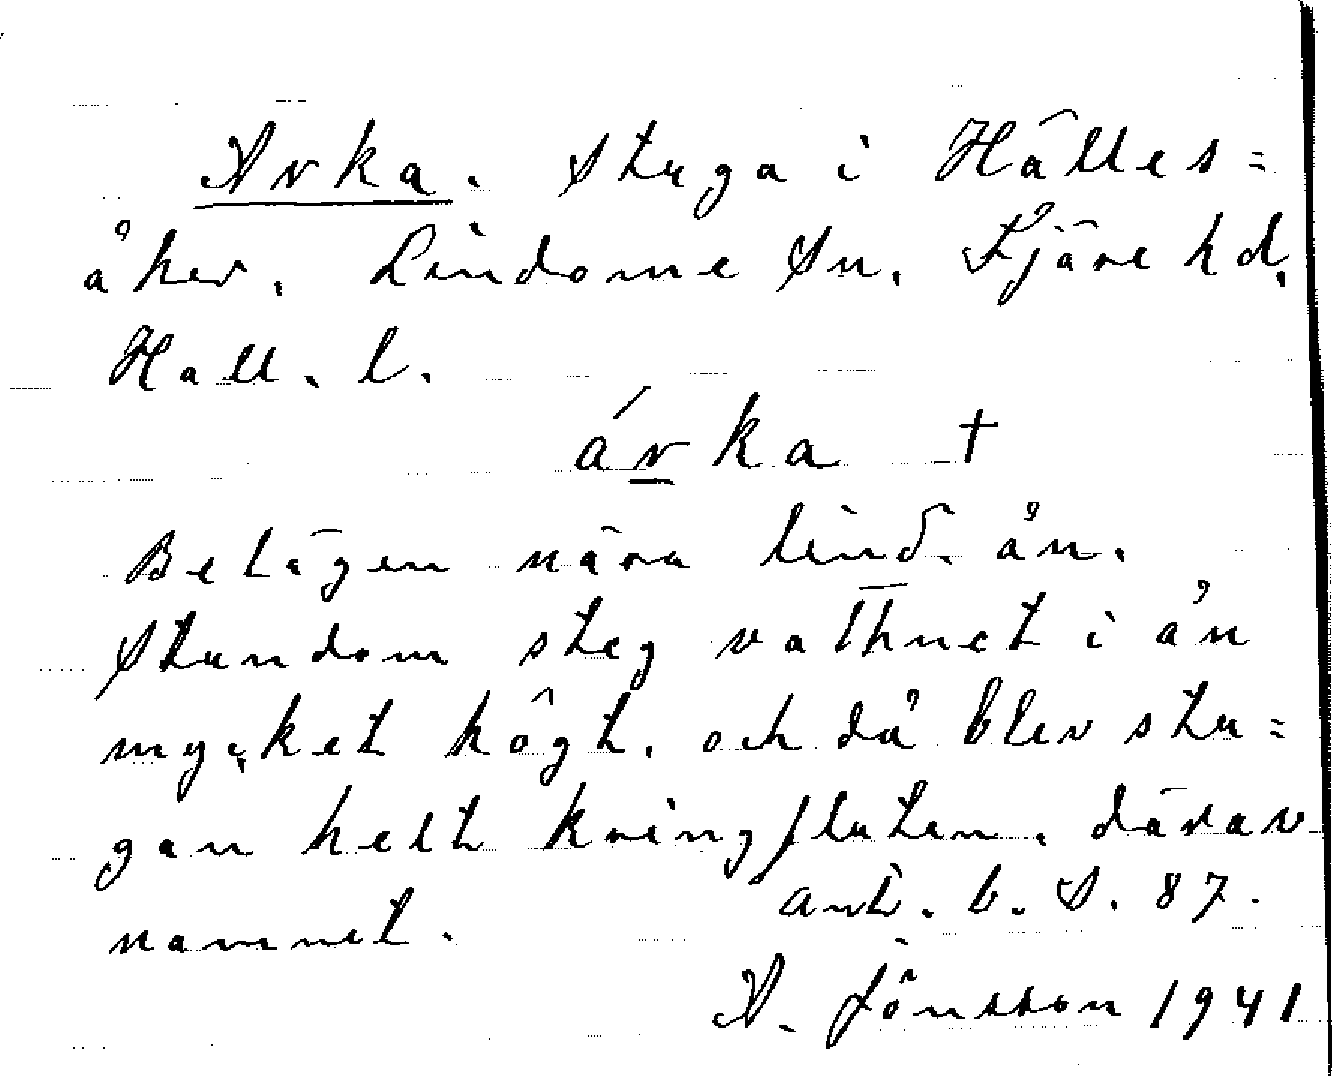 Arka. Stuga i Hälles=
åker. Lindome Sn. Fjäre hd.
Hall. l.
árka †
Belägen nära lind. ån.
Stundom steg vattnet i ån
mycket högt. och då blev stu=
gan helt kringfluten. därav
namnet.
ant. b. S. 87.
A. Jönsson 1941